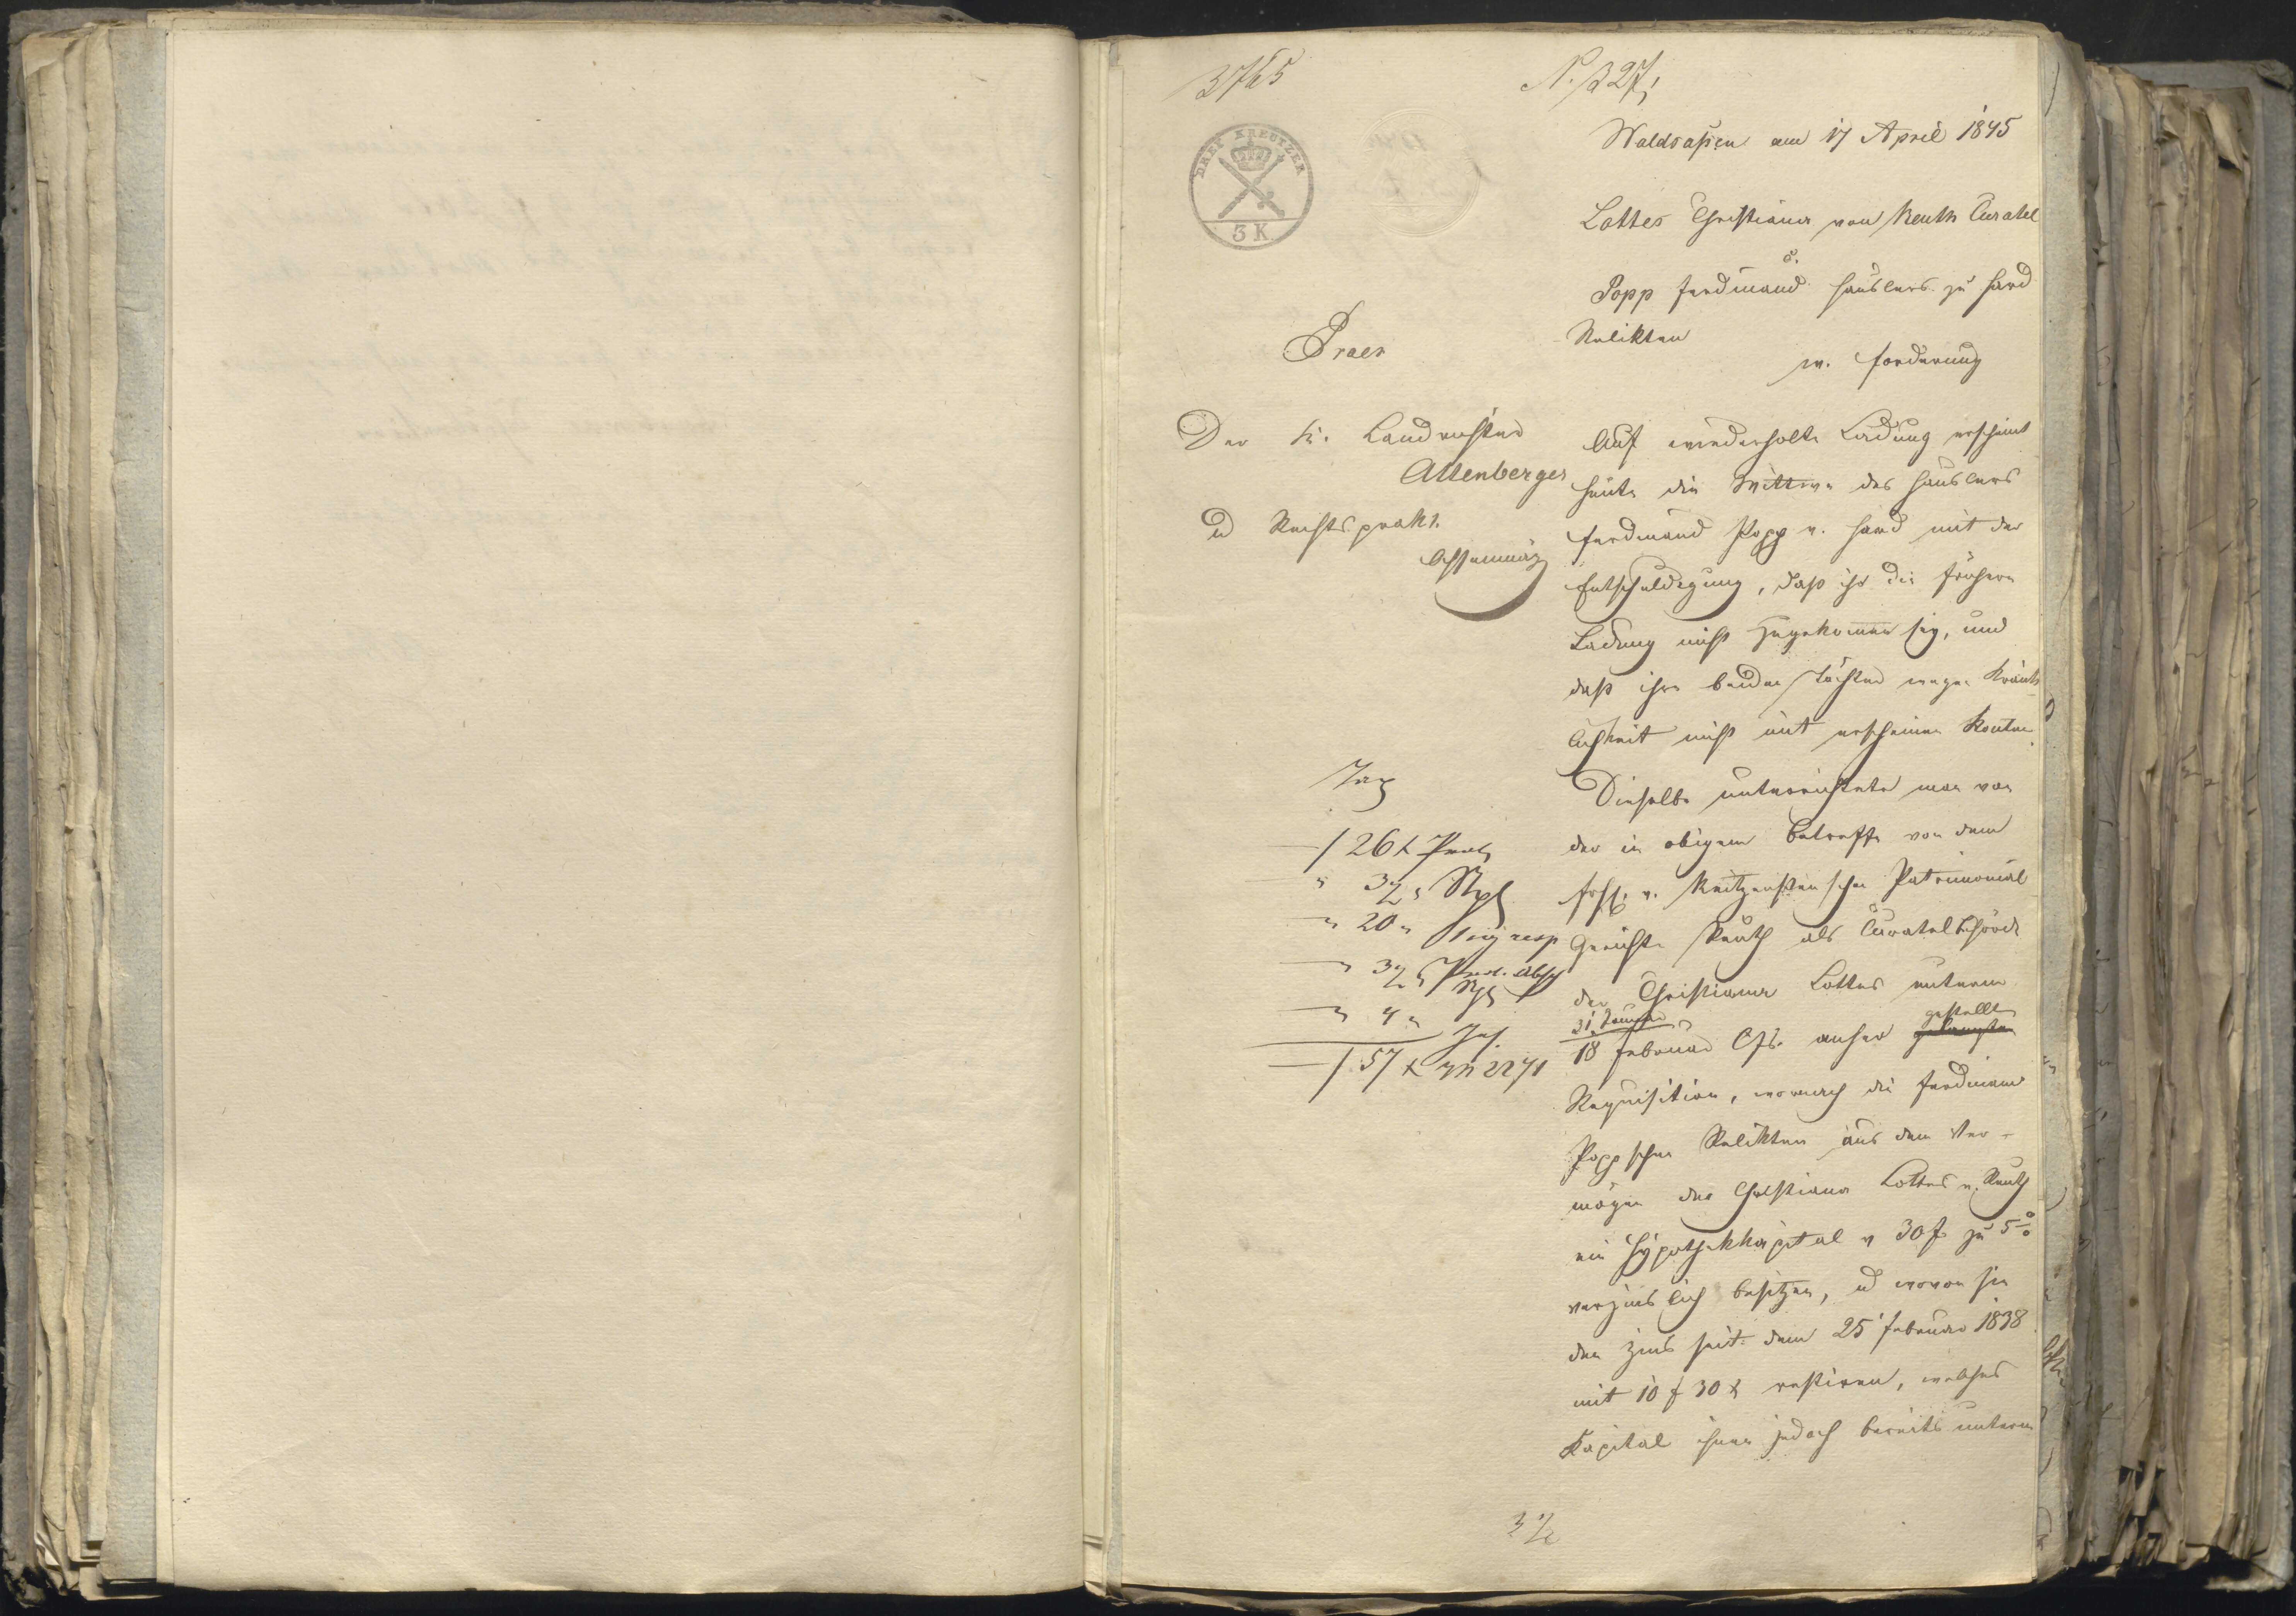 3765
N. 327,
DREY KREUTZER
3 K.
Waldsaßen am 17 April 1845
Lottes Christiana von Reuth Curatel
c.
Popp Ferdinand Häuslers zu Hard
Relikten
w. Forderung
Praes
Der K. Landrichter
Attenberger
u Rechtsprakt.
Auf wiederholte Ladung erscheint
heute die Wittwe des Häuslers
Ferdinand Popp v. Hard mit der
Entschuldigung, daß ihr die frühere
Ladung nicht zugekommen sey, und
daß ihre beiden Töchter wegen Kränk
lichkeit nicht mit erscheinen konten.
Dieselbe unterrichtete man von
der in obigem Betreffe von dem
frhl. v. Reitzenstein'schen Patrimonial
Gerichte Reuth als Curatelbehörde
der Christiana Lottes unterm
21. Januar
gestellten
18 Februar l. Js. anher gelangten
Requisition, wornach die Ferdinand
Popp'schen Relikten aus dem Ver-
mögen der Christiana Lottes v. Reuth
ein Hypothekkapital v 30 f zu 5 %
verzinslich besitzen, u wovon sie
den Zins seit dem 25 Februar 1838
mit 10 f 30 x restiren, welches
Kapital ihnen jedoch bereits unterm
Tax
— / 26 x Prot
" 3 " Stpl
" 20 " Sig resp
" 3 " Prot. Absch
Stpl
" 4 " Ins.
— / 57 x 2271
3 x